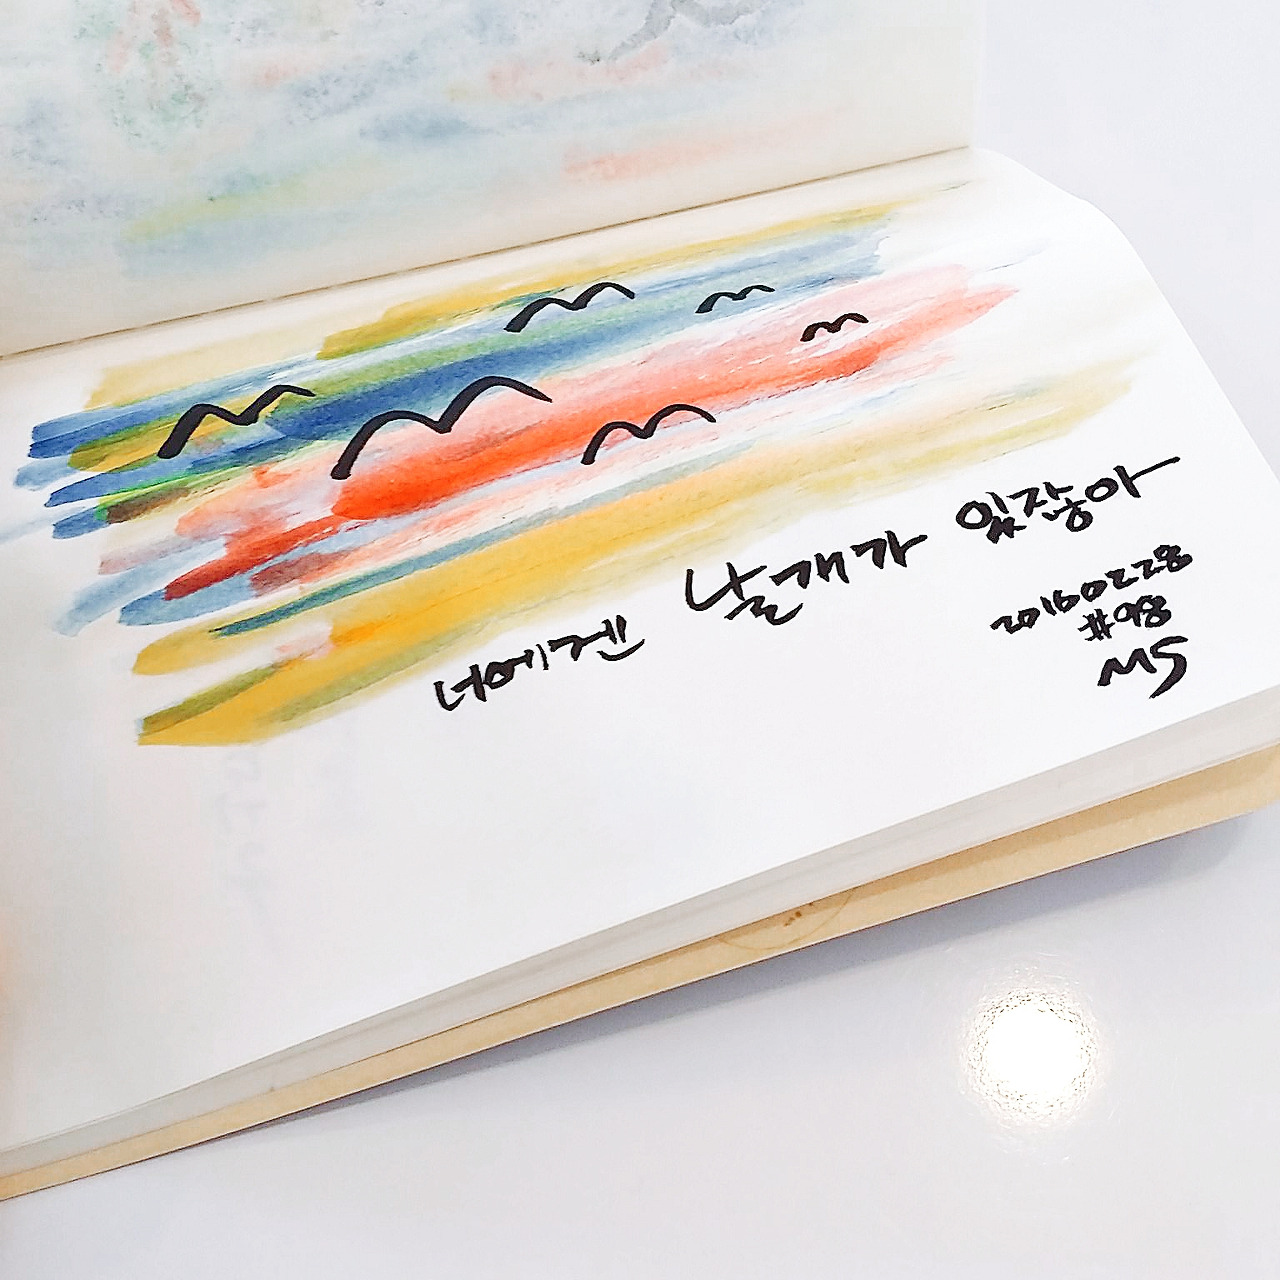 너에겐 날개가 있잖아
20160228
#98
MS